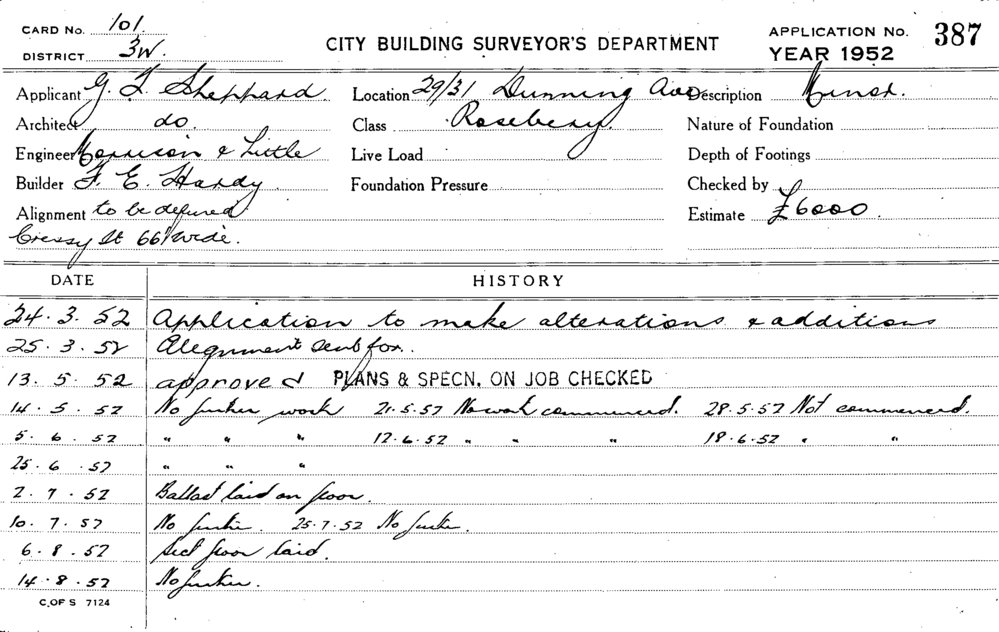 CARD No. 101.
DISTRICT 3W.
CITY BUILDING SURVEYOR'S DEPARTMENT
APPLICATION No. 387
YEAR 1952
Applicant G. L. Sheppard Location 29/31 Dunning Ave Description Minor.
Architect do. Class Rosebery. Nature of Foundation
Engineer Morrison & Little Live Load Depth of Footings
Builder F. E. Hardy Foundation Pressure Checked by
Alignment to be defined Estimate £6000.
Cressy St 66' wide.
DATE HISTORY
24.3.52 Application to make alterations & additions
25.3.52 Alignment sent for.
13.5.52 approved PLANS & SPECN. ON JOB CHECKED
14.5.52 No further work 21.5.52 No work commenced. 28.5.52 Not commenced.
5.6.52 " " " 12.6.52 " " " 18.6.52 " "
25.6.52 " " "
2.7.52 Ballast laid on floor.
10.7.52 No further. 25.7.52 No further.
6.8.52 Sect floor laid.
14.8.52 No further.
C. OF S 7124